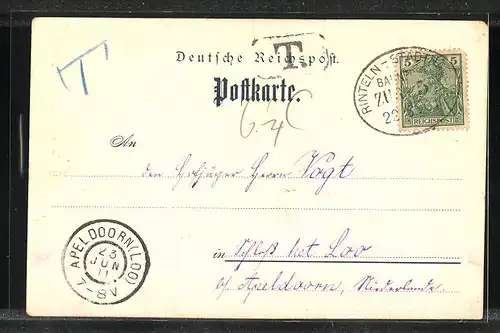 T
T.
Deutsche Reichspost.
Postkarte.
RINTELN-STADTH
BAHN
ZUG 5
22
5 5
REICHSPOST
An
den Hofjäger Herrn Vogt
in Schloß het Loo
b/ Apeldoorn, Niederlande.
APELDOORN (LOO)
23
JUN
11
7-8V